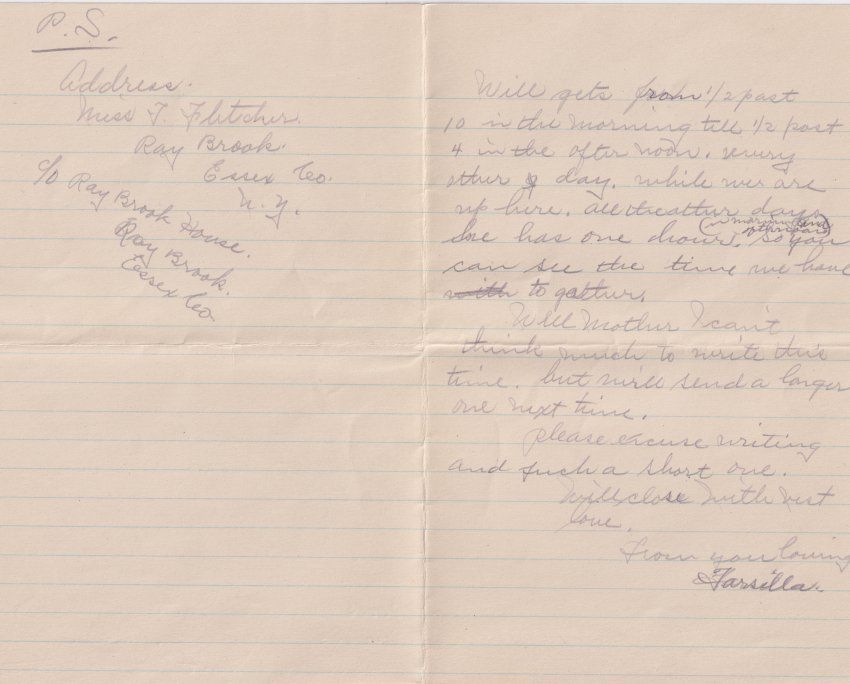 P.S.
Address.
Miss T. Fletcher.
Ray Brook.
Essex Co.
N.Y.
c/o Ray Brook House.
Ray Brook.
Essex Co.
Will gets from 1/2 past
10 in the morning till 1/2 past
4 in the after noon. every
other day. while we are
up here. all the other days
he has one hour (in morning and
afternoon). so you
can see the time we have
with to gether.
Well Mother I can't
think much to write this
time. but will send a larger
one next time.
please excuse writing
and such a short one.
Will close with best
love.
From you loving
Tarsilla.